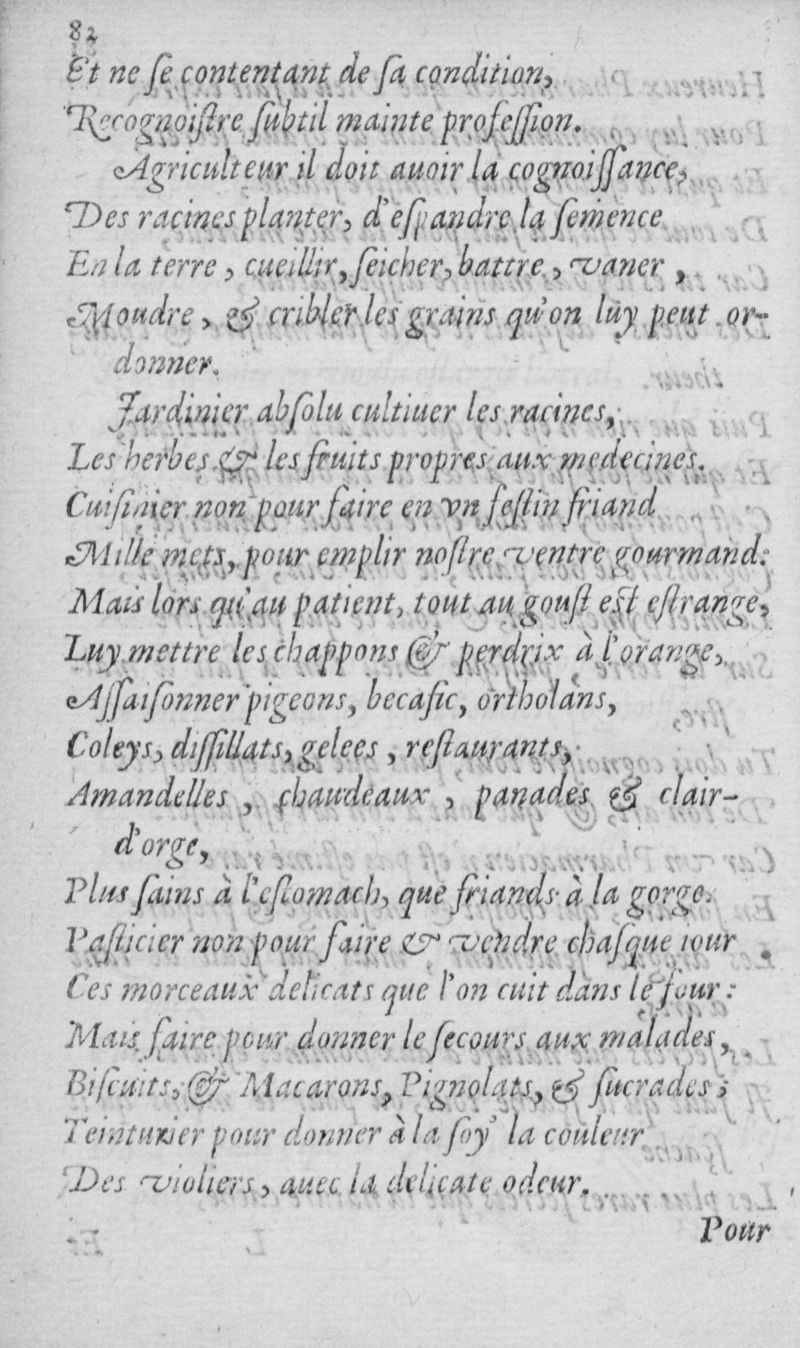 82
Et ne ſe contentant de ſa condition,
Recognoiſtre ſubtil mainte profeſſion.
Agriculteur il doit auoir la cognoiſſance,
Des racines planter, d'eſpandre la ſemence
En la terre, cueillir, ſeicher, battre, vaner,
Moudre, & cribler les grains qu'on luy peut or-
donner.
Jardinier abſolu cultiuer les racines,
Les herbes & les fruits propres aux medecines.
Cuiſinier non pour faire en vn feſtin friand
Mille mets, pour emplir noſtre ventre gourmand:
Mais lors qu'au patient, tout au gouſt eſt eſtrange,
Luy mettre les chappons & perdrix à l'orange,
Aſſaiſonner pigeons, becaſic, ortholans,
Coleys, diſſillats, gelees, reſtaurants,
Amandelles, chaudeaux, panades & clair-
d'orge,
Plus ſains à l'eſtomach, que friands à la gorge.
Paſticier non pour faire & vendre chaſque iour
Ces morceaux delicats que l'on cuit dans le four:
Mais faire pour donner le ſecours aux malades,
Biſcuits, & Macarons, Pignolats, & ſucrades;
Teinturier pour donner à la ſoy la couleur
Des violiers, auec la delicate odeur.
Pour